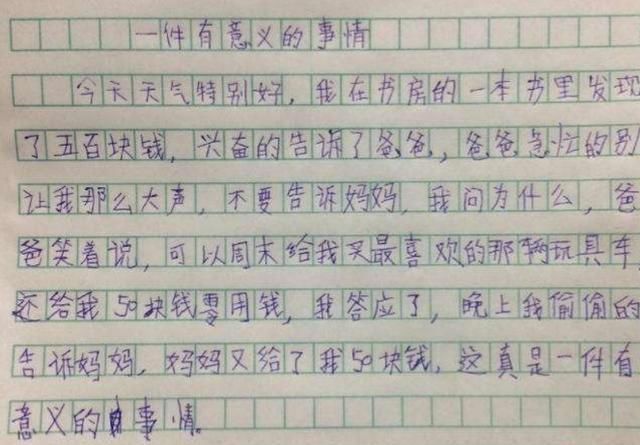 一件有意义的事情
今天天气特别好,我在书房的一本书里发现
了五百块钱,兴奋的告诉了爸爸,爸爸急忙的别
让我那么大声,不要告诉妈妈,我问为什么,爸
爸笑着说,可以周末给我买最喜欢的那辆玩具车,
还给我50块钱零用钱,我答应了,晚上我偷偷的
告诉妈妈,妈妈又给了我50块钱,这真是一件有
意义的事情。